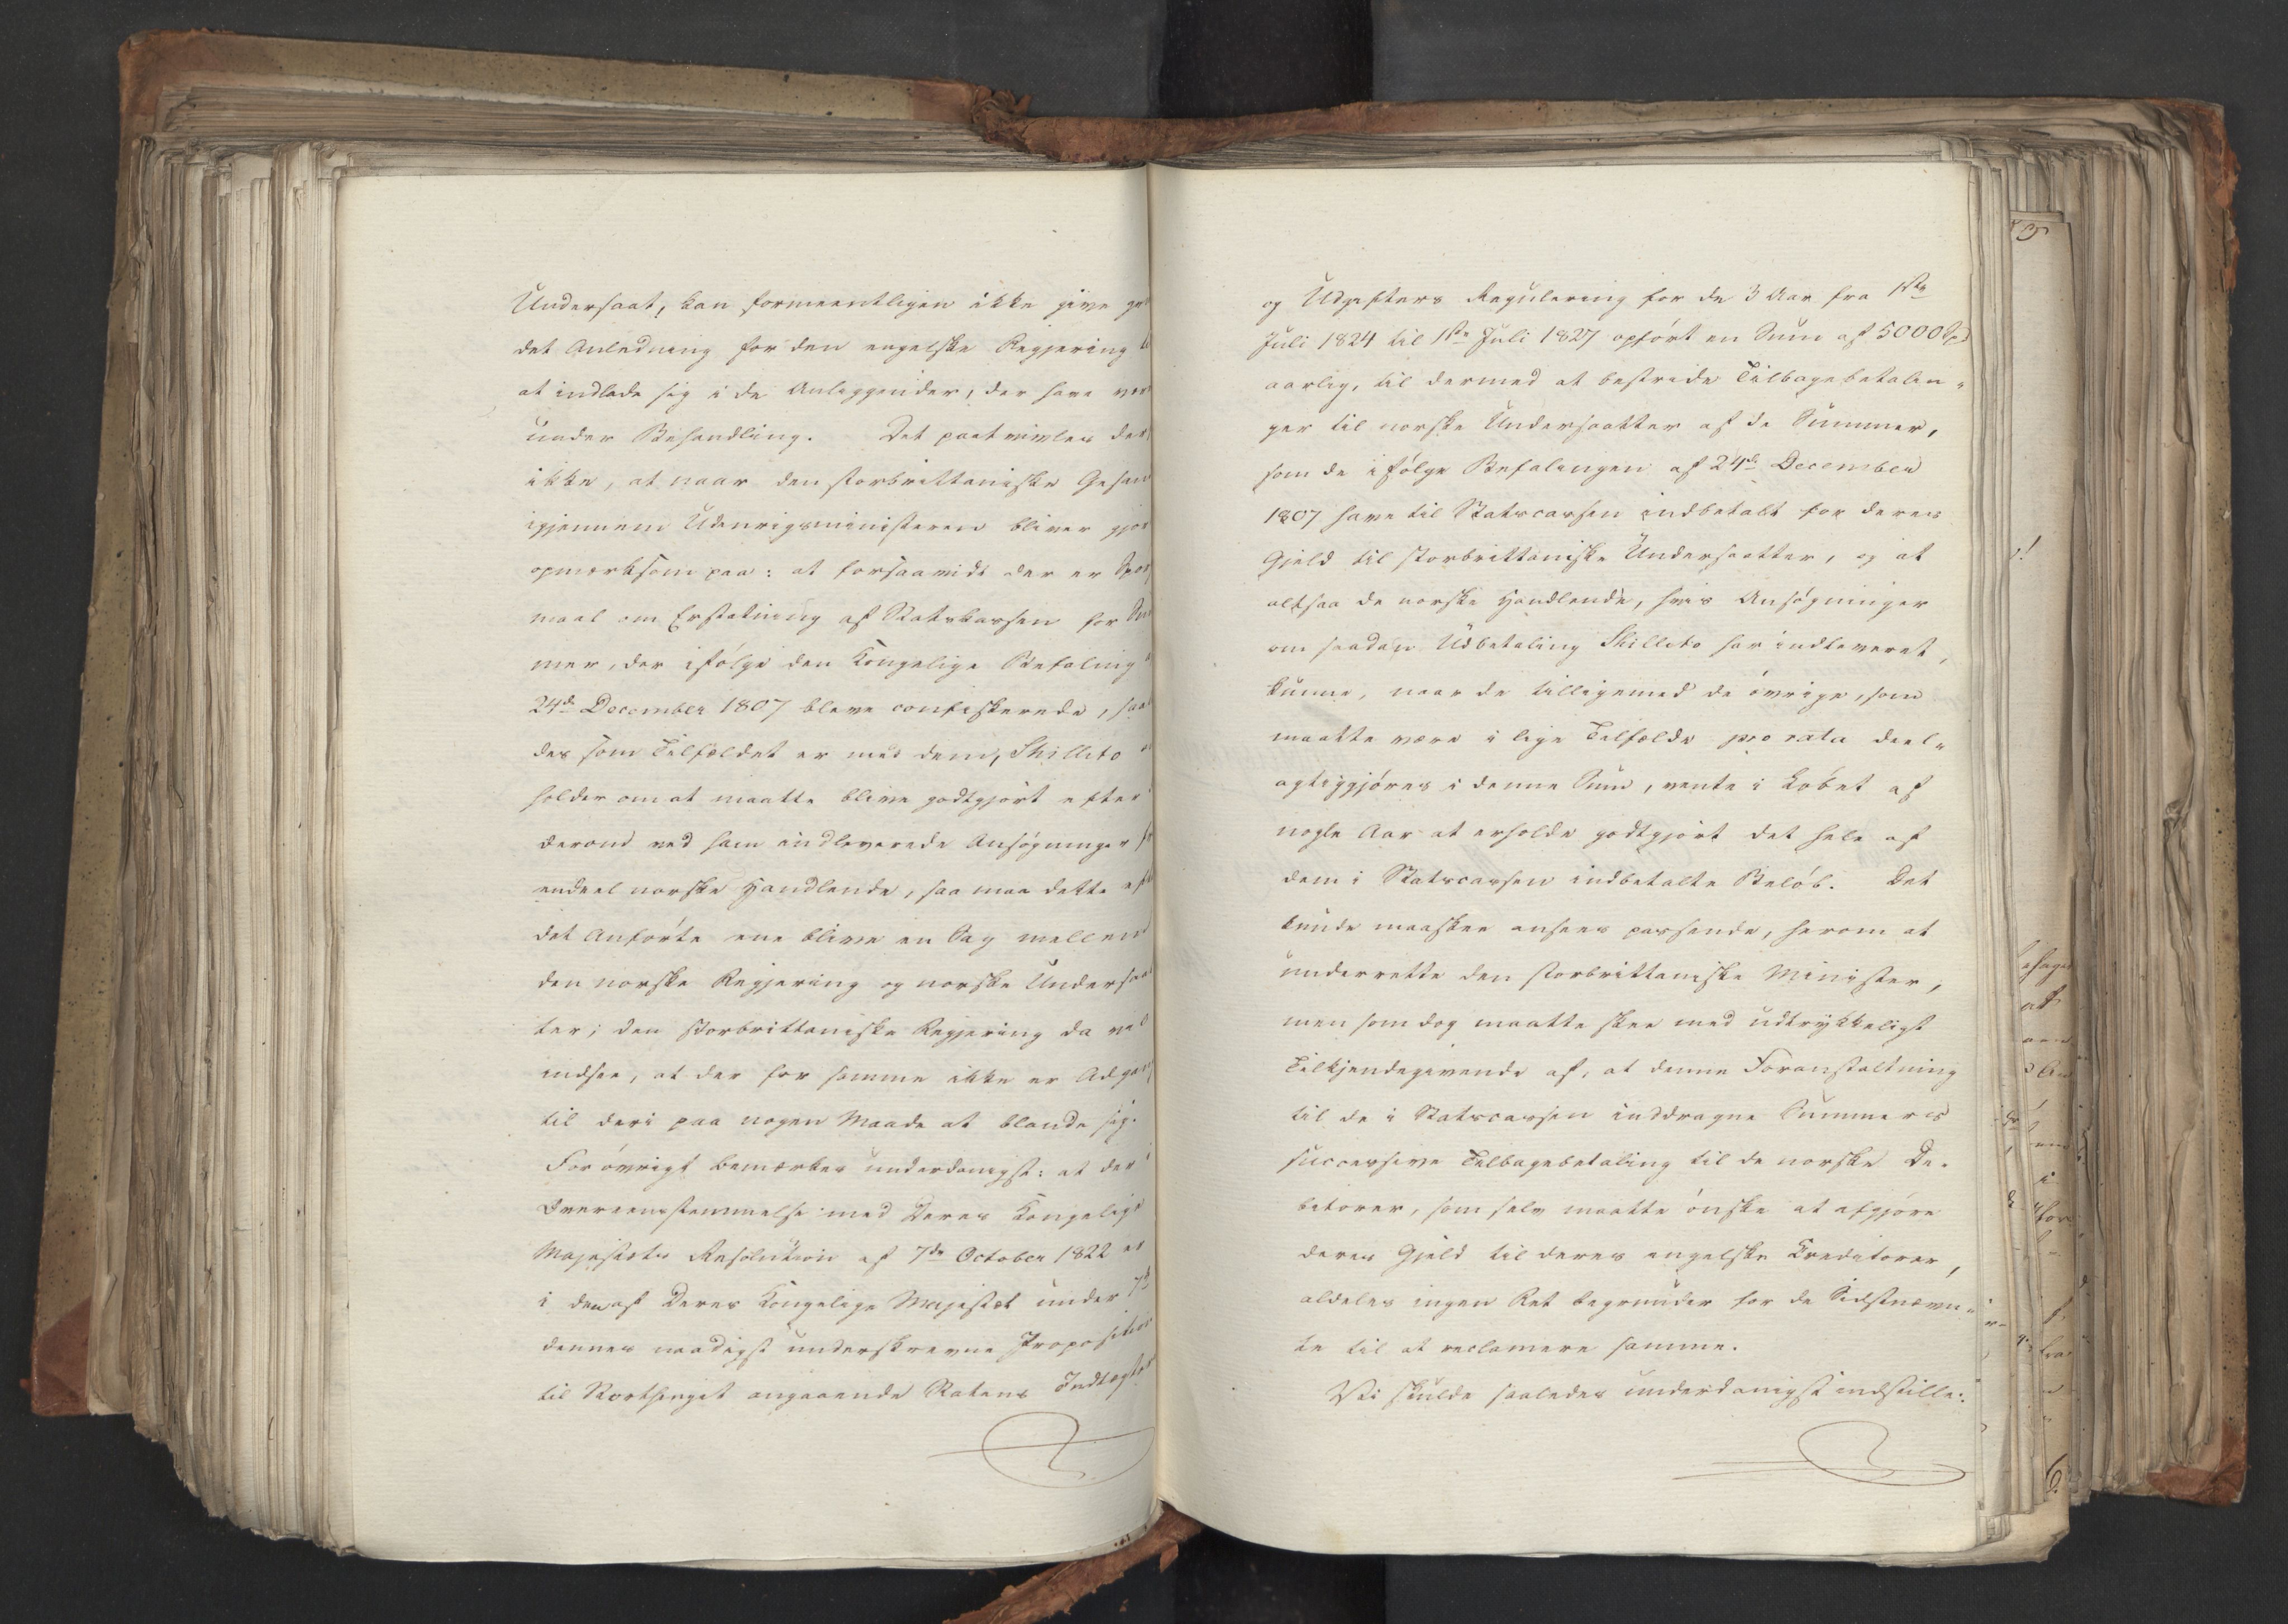 Undersaat, kan formeentligen ikke give
det Anledning for den engelske Regjering
at indlade sig i de Anliggender, der have
under Behandling. Det paatvivles
ikke, at naar den storbrittaniske
igjennem Udenrigsministeren bliver
opmærksom paa: at forsaavidt der er
maal om Erstatning af Statskassen for
mer, der ifølge den Kongelige Befaling
24de December 1807 bleve confiskerede,
des som Tilfældet er med dem, Shillito
holder om at maatte blive godtgjort efter
derom ved ham indleverede Ansøgninger
endeel norske Handlende, saa maa dette
det Anførte ene blive en Sag mellem
den norske Regjering og norske
ter; den storbrittaniske Regjering da vel
indsee, at der for samme ikke er
til deri paa nogen Maade at blande sig.
Forøvrigt bemærkes underdanigst: at der
Overeensstemmelse med Deres Kongelige
Majestæts Resolution af 7de October 1822 er
i den af Deres Kongelige Majestæt under 7de
dennes naadigst underskrevne Proposition
til Storthinget angaaende Statens Indtægter
og Udgifters Regulering for de 3 Aar fra 1ste
Juli 1824 til 1ste Juli 1827 opført en Sum af 5000 Spd
aarlig, til dermed at bestride Tilbagebetalin-
ger til norske Undersaatter af de Summer,
som de ifølge Befalingen af 24de December
1807 have til Statscassen indbetalt for deres
Gjeld til storbrittaniske Undersaatter, og at
altsaa de norske Handlende, hvis Ansøgninger
om saadan Udbetaling Shillito har indleveret,
kunne, naar de tilligemed de øvrige, som
maatte være i lige Tilfælde pro rata deel-
agtiggjøres i denne Sum, vente i Løbet af
nogle Aar at erholde godtgjort det hele af
dem i Statscassen indbetalte Beløb. Det
kunde maaskee ansees passende, herom at
underrette den storbrittaniske Minister,
men som dog maatte skee med udtrykkeligt
Tilkjendegivende af, at denne Foranstaltning
til de i Statscassen inddragne Summers
successive Tilbagebetaling til de norske De-
bitorer, som selv maatte ønske at afgjøre
deres Gjeld til deres engelske Creditorer,
aldeles ingen Ret begrunder for de Sidstnævn-
te til at reclamere samme.
Vi skulde saaledes underdanigst indstille: